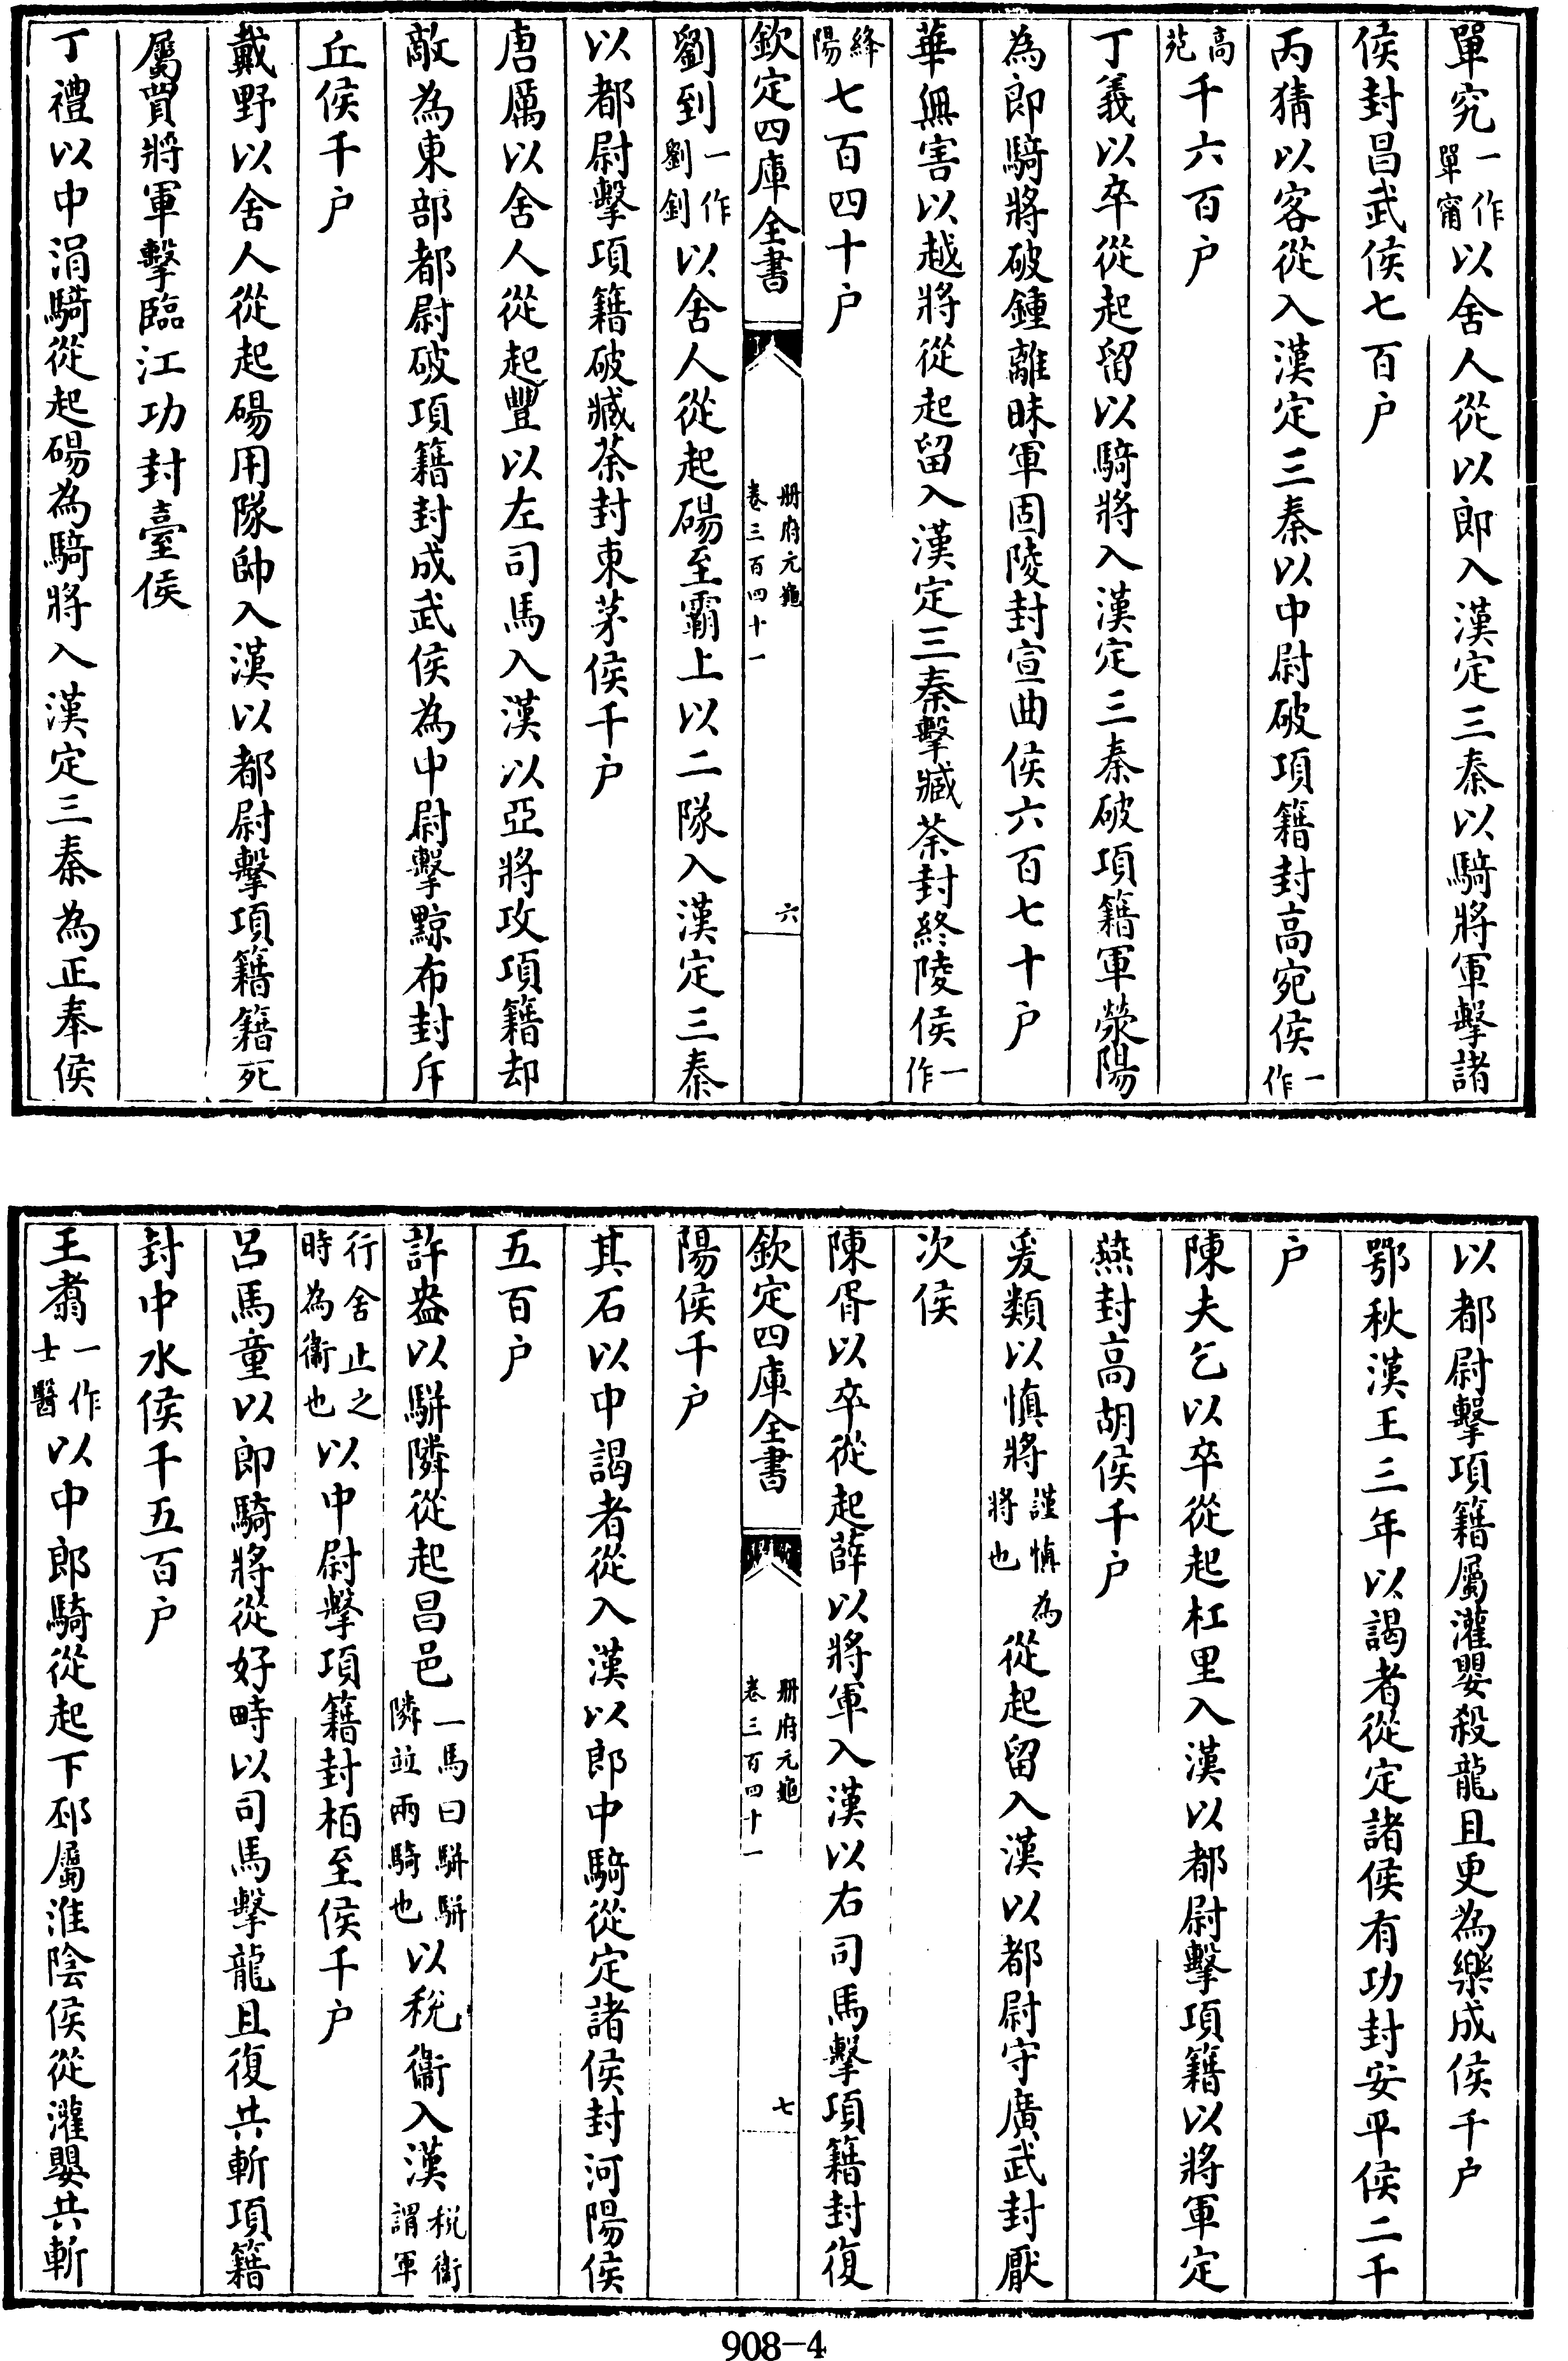 單究一作單甯以舍人從以郎入漢定三秦以騎將軍擊諸
侯封昌武侯七百户
丙猜以客從入漢定三秦以中尉破項籍封高宛侯一作
高苑千六百户
丁義以卒從起留以騎將入漢定三秦破項籍軍滎陽
為郎騎將破鍾離昧軍固陵封宣曲侯六百七十户
華無害以越將從起留入漢定三秦擊臧荼封終陵侯一作
絳陽七百四十户
欽定四庫全書 册府元龜卷三百四十一 六
劉到一作劉釗以舍人從起碭至霸上以二隊入漢定三秦
以都尉擊項籍破臧荼封東茅侯千户
唐厲以舍人從起豐以左司馬入漢以亞將攻項籍却
敵為東部都尉破項籍封成武侯為中尉擊黥布封斥
丘侯千户
戴野以舍人從起碭用隊帥入漢以都尉擊項籍籍死
屬賈將軍擊臨江功封臺侯
丁禮以中涓騎從起碭為騎將入漢定三秦為正奉侯
以都尉擊項籍屬灌嬰殺龍且更為樂成侯千户
鄂秋漢王三年以謁者從定諸侯有功封安平侯二千
户
陳夫乞以卒從起杠里入漢以都尉擊項籍以將軍定
燕封高胡侯千户
爰類以慎將謹慎為將也從起留入漢以都尉守廣武封厭
次侯
陳胥以卒從起薛以將軍入漢以右司馬擊項籍封復
欽定四庫全書 册府元龜卷三百四十一 七
陽侯千户
其石以中謁者從入漢以郎中騎從定諸侯封河陽侯
五百户
許盎以駢隣從起昌邑一馬曰駢駢隣並兩騎也以稅衞入漢稅衞謂軍
行舍止之時為衞也以中尉擊項籍封栢至侯千户
呂馬童以郎騎將從好畤以司馬擊龍且復共斬項籍
封中水侯千五百户
王翥一作士醫以中郎騎從起下邳屬淮陰侯從灌嬰共斬
908-4